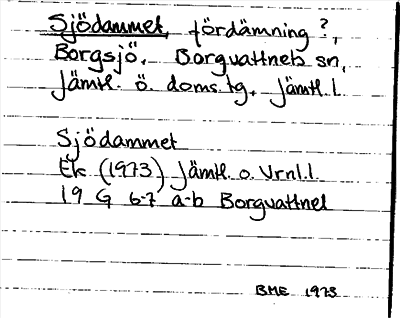 Sjödammet, fördämning?,
Borgsjö, Borgvattnets sn,
Jämtl. ö. doms.tg. Jämtl. l.
Sjödammet
Ek (1973) Jämtl. o. Vrnl. l.
19 G 6-7 a-b Borgvattnet
BME 1973